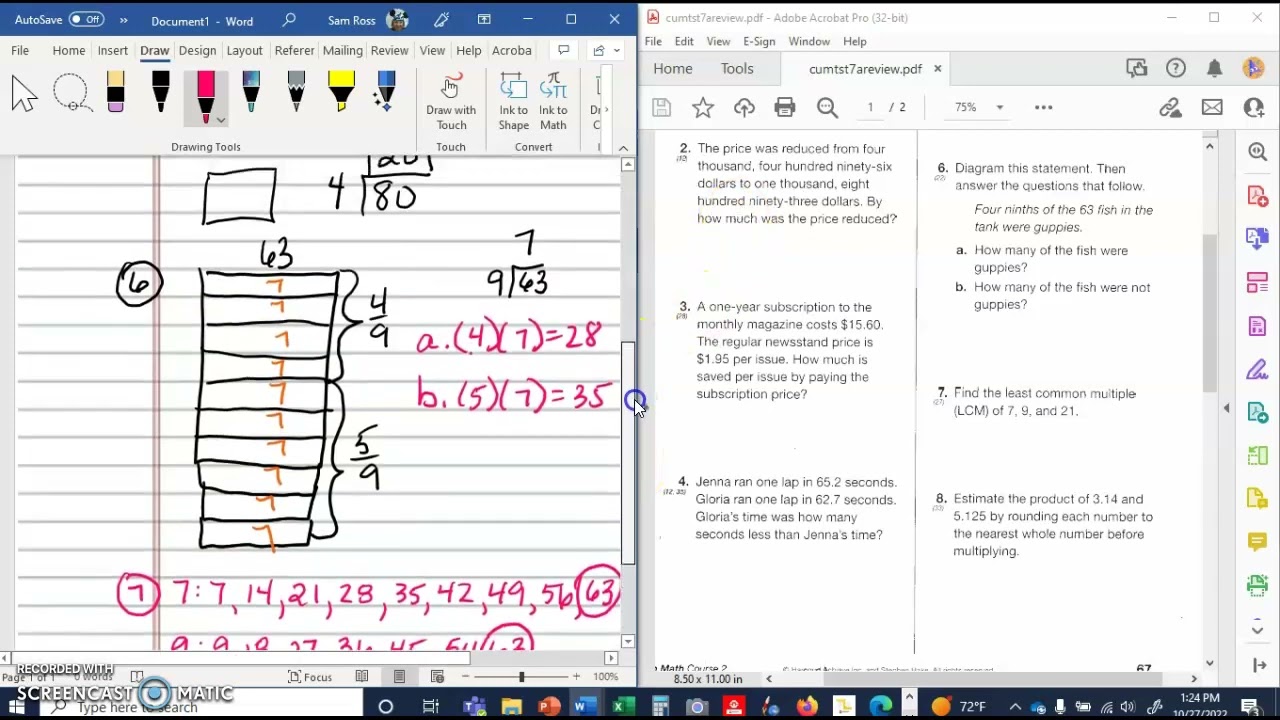 AutoSave Off Document1 - Word Sam Ross
File Home Insert Draw Design Layout Referer Mailing Review View Help Acroba
Draw with Touch
Ink to Shape
Ink to Math
Drawing Tools Touch Convert
4 80
6
63
7
9 63
7
7
7
7
7
7
7
7
7
7
4
9
5
9
a. (4)(7)=28
b. (5)(7)=35
7 7: 7, 14, 21, 28, 35, 42, 49, 56, 63
Page 1 of 1 Focus 100%
RECORDED WITH
SCREENCAST MATIC
Type here to search
cumtst7areview.pdf - Adobe Acrobat Pro (32-bit)
File Edit View E-Sign Window Help
Home Tools cumtst7areview.pdf ×
1 / 2 75%
2. The price was reduced from four
(12) thousand, four hundred ninety-six
dollars to one thousand, eight
hundred ninety-three dollars. By
how much was the price reduced?
3. A one-year subscription to the
(28) monthly magazine costs $15.60.
The regular newsstand price is
$1.95 per issue. How much is
saved per issue by paying the
subscription price?
4. Jenna ran one lap in 65.2 seconds.
Gloria ran one lap in 62.7 seconds.
Gloria's time was how many
seconds less than Jenna's time?
6. Diagram this statement. Then
(22) answer the questions that follow.
Four ninths of the 63 fish in the
tank were guppies.
a. How many of the fish were
guppies?
b. How many of the fish were not
guppies?
7. Find the least common multiple
(27) (LCM) of 7, 9, and 21.
8. Estimate the product of 3.14 and
(33) 5.125 by rounding each number to
the nearest whole number before
multiplying.
Math Course 2
67
8.50 x 11.00 in
72°F
1:24 PM
10/27/2022